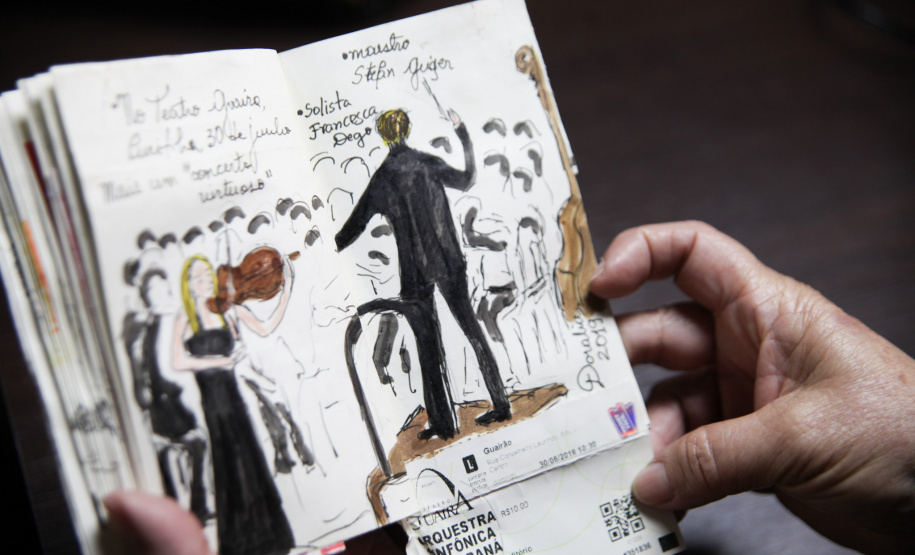 •No Teatro Guaíra,
Curitiba, 30 de junho
Mais um "concerto
virtuoso"
•maestro
Stefan Geiger
•Solista
Francesca
Dego
2019
L
Guairão
30/06/2019 10:30
R$10,00
GUAÍRA
ORQUESTRA
SINFÔNICA